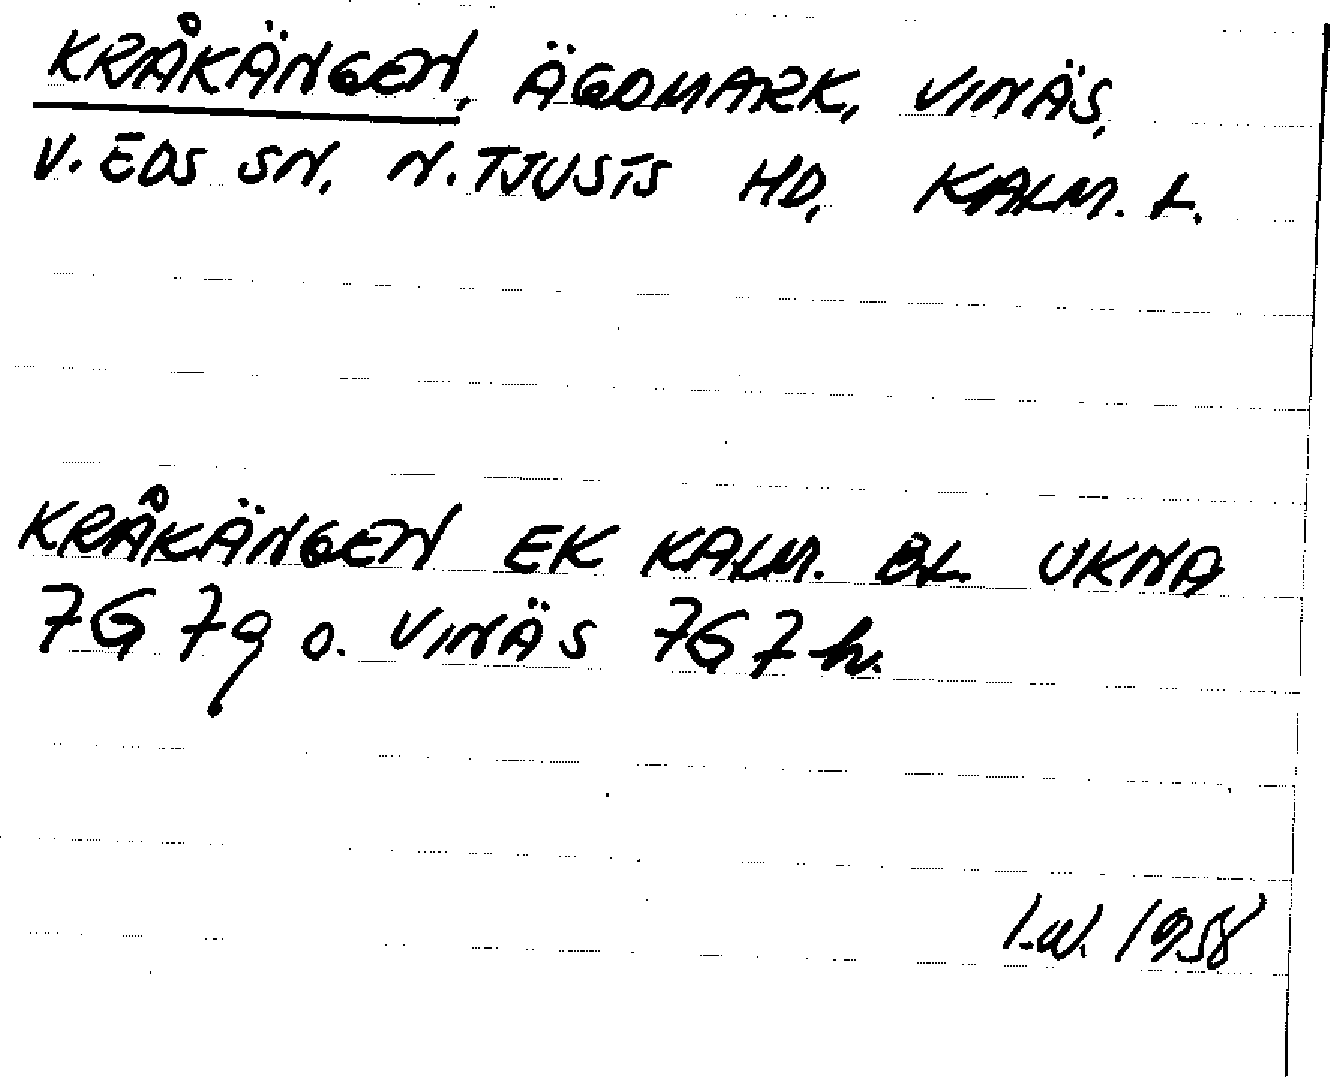 KRÅKÄNGEN, ÄGOMARK, VINÄS,
V. EDS SN, N. TJUSTS HD, KALM. L.
KRÅKÄNGEN EK KALM. BL. UKNA
7G 7g o. VINÄS 7G 7h.
I.W. 1958